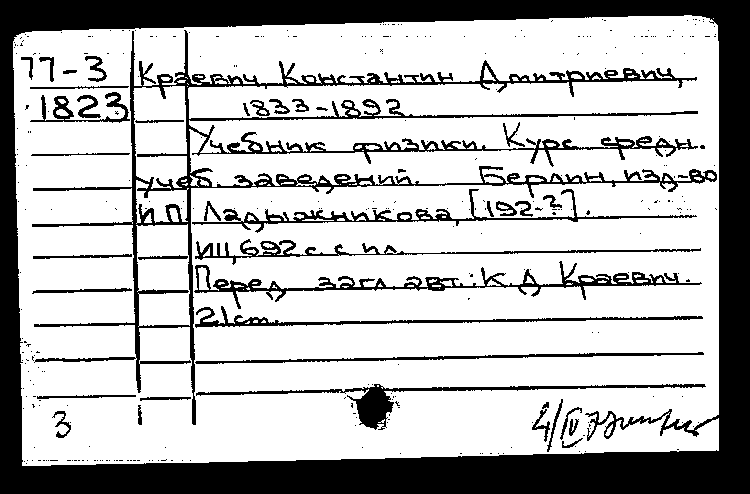 77-3 Краевич, Константин Дмитриевич,
1823 1833-1892.
Учебник физики. Курс средн.
учеб. заведений. Берлин, изд-во
И.П. Ладыжникова, [192-?].
VIII, 692 с. с ил.
Перед загл. авт.: К.Д. Краевич.
21 cm.
3
4/IV